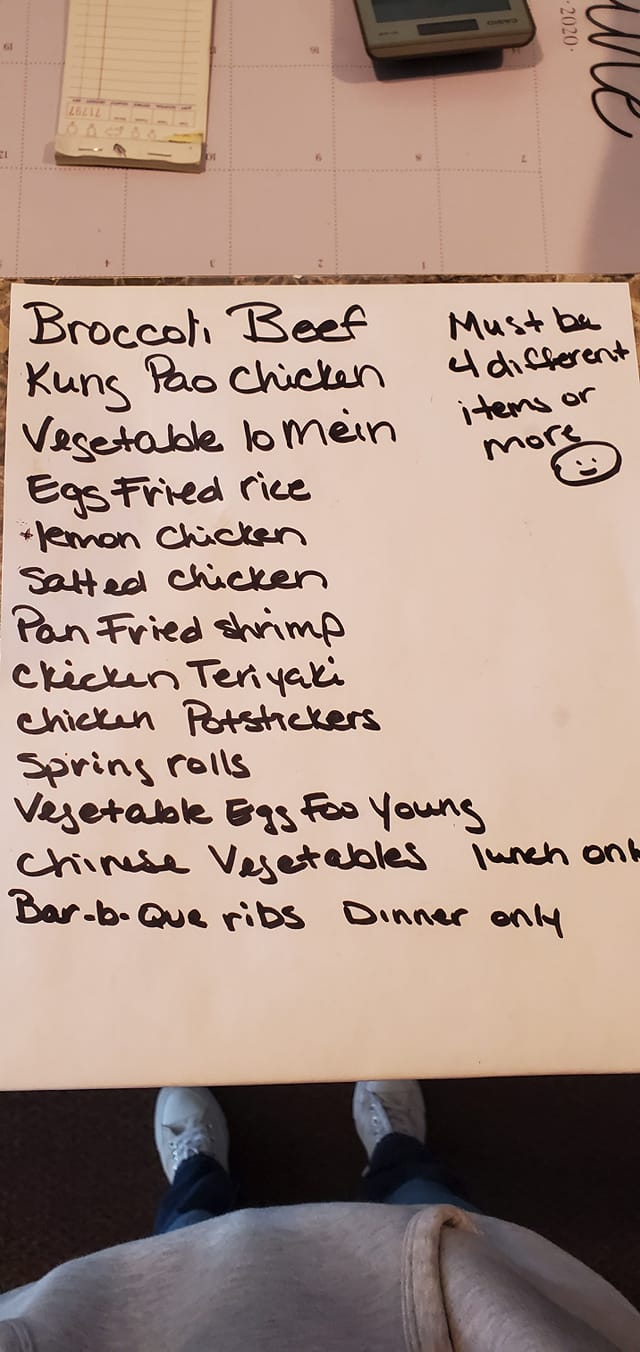 CASIO
·2020·
71797
19
16
12
10
9
8
7
4
2
1
Broccoli Beef
Kung Pao Chicken
Vegetable lo Mein
Egg Fried rice
*lemon Chicken
Salted Chicken
Pan Fried Shrimp
Chicken Teriyaki
Chicken Potstickers
Spring rolls
Vegetable Egg Foo Young
Chinese Vegetables lunch only
Bar-b-Que ribs Dinner only
Must be
4 different
items or
more